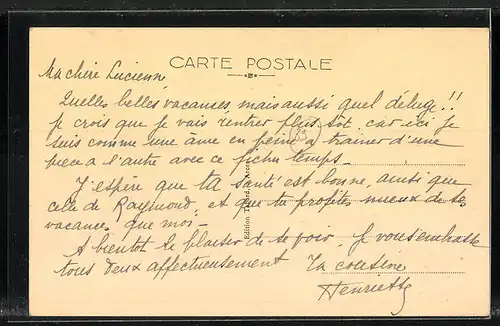 CARTE POSTALE
Ma chère Lucienne
Quelles belles vacances, mais aussi quel déluge!!
Je crois que je vais rentrer plus tôt car ici je
suis comme une âme en peine à trainer d'une
pièce à l'autre avec ce fichu temps-
J'espère que ta santé est bonne, ainsi que
celle de Raymond, et que tu profites mieux de tes
vacances, que moi-
A bientôt le plaisir de se voir. Je vous embrasse
tous deux affectueusement Ta cousine
Henriette
Edition